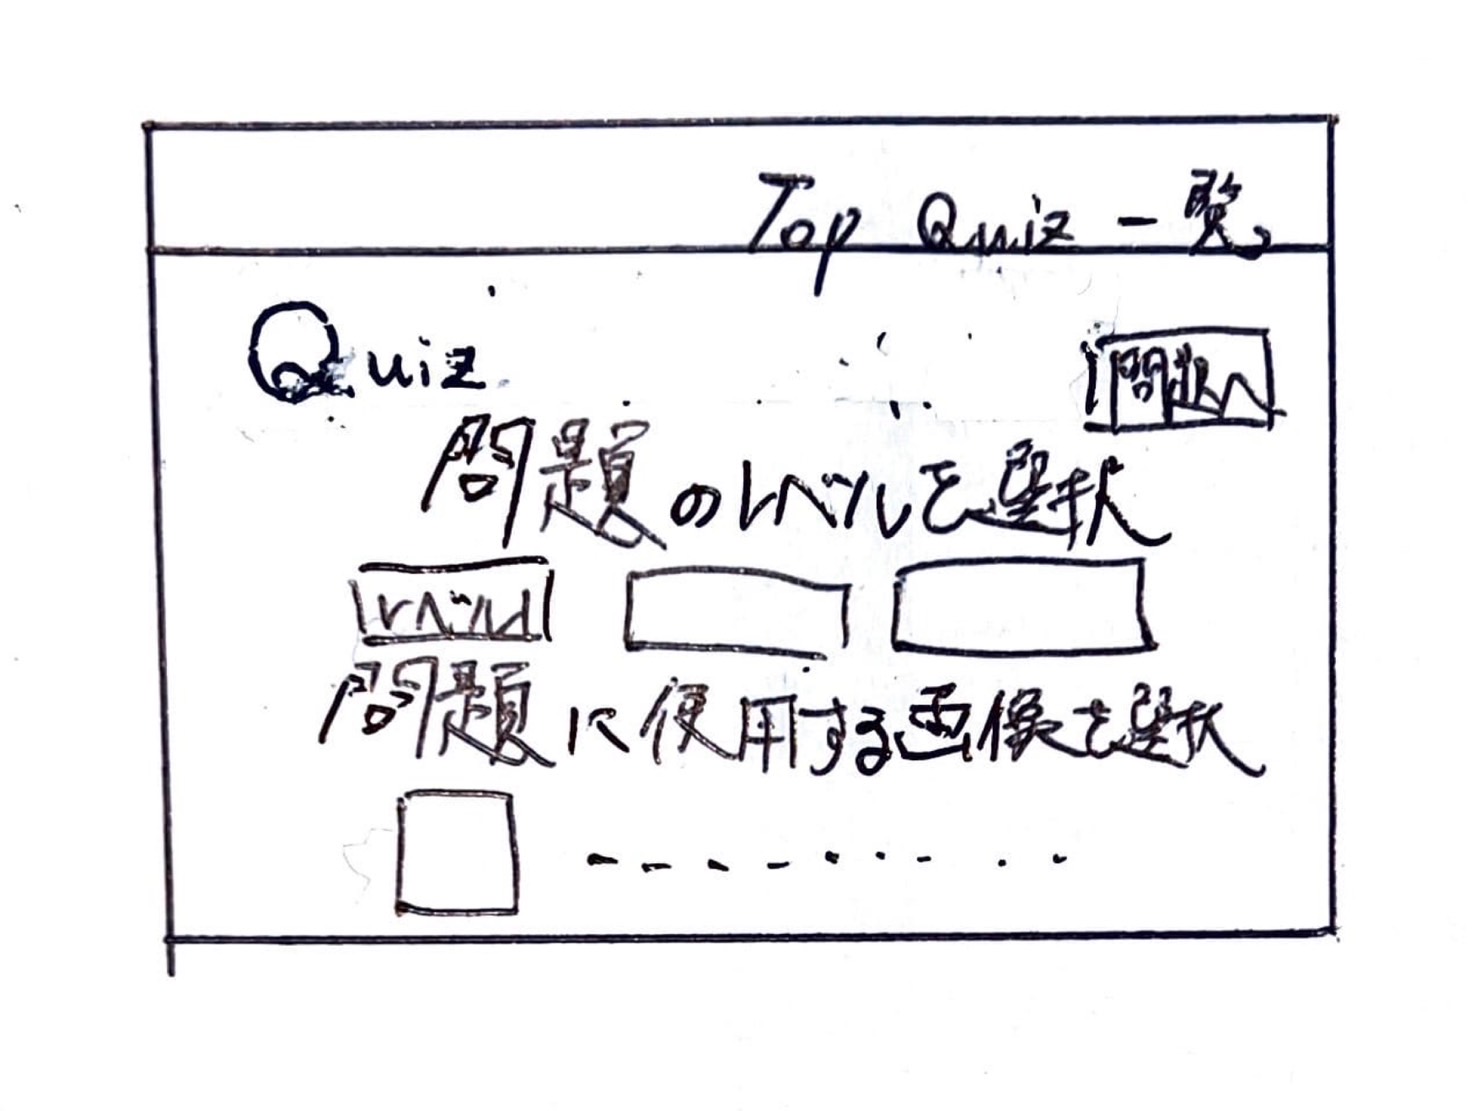 Top Quiz 一覧
Quiz
問題へ
問題のレベルを選択
レベル
問題に使用する画像を選択